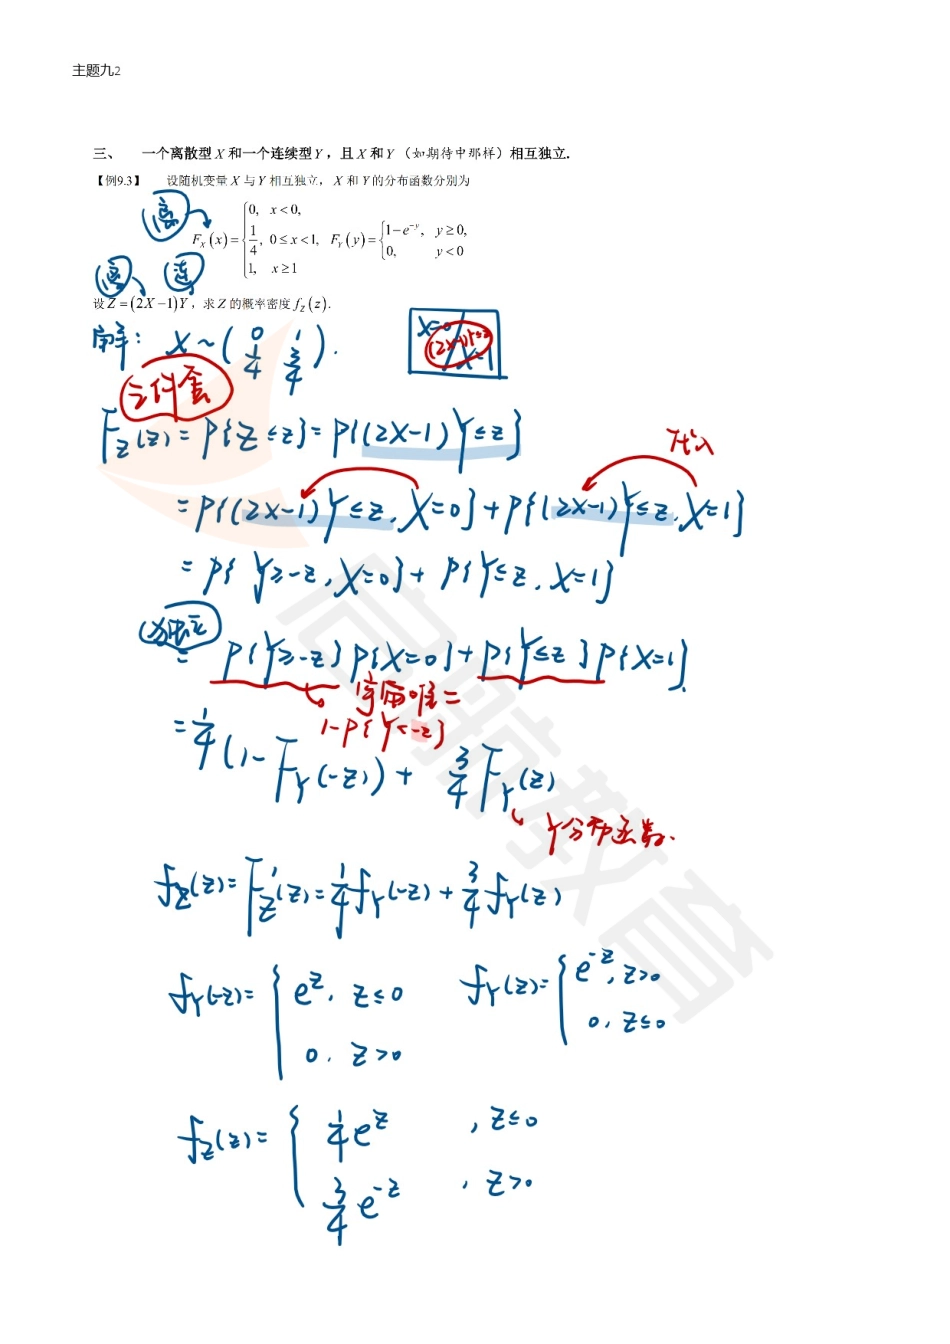 主题九2
三、 一个离散型 X 和一个连续型 Y，且 X 和 Y （如期待中那样）相互独立.
【例9.3】 设随机变量 X 与 Y 相互独立， X 和 Y 的分布函数分别为
离
F_X(x)={0, x<0, 1/4, 0≤x<1, 1, x≥1 F_Y(y)={1-e^{-y}, y≥0, 0, y<0
离 连
设 Z=(2X-1)Y，求 Z 的概率密度 f_Z(z).
解: X~(0 1 1/4 3/4).
X=0 (2X-1)Y≤z X=1
三件套
F_Z(z)=P{Z≤z}=P{(2X-1)Y≤z}
代入
=P{(2X-1)Y≤z, X=0}+P{(2X-1)Y≤z, X=1}
=P{Y≥-z, X=0}+P{Y≤z, X=1}
独立
=P{Y≥-z}P{X=0}+P{Y≤z}P{X=1}
1-P{Y<-z}
=1/4(1-F_Y(-z))+3/4F_Y(z)
Y分布函数.
f_Z(z)=F_Z'(z)=1/4f_Y(-z)+3/4f_Y(z)
f_Y(-z)={e^z, z≤0 0, z>0 f_Y(z)={e^{-z}, z>0 0, z≤0
f_Z(z)={1/4e^z, z≤0 3/4e^{-z}, z>0
启航教育